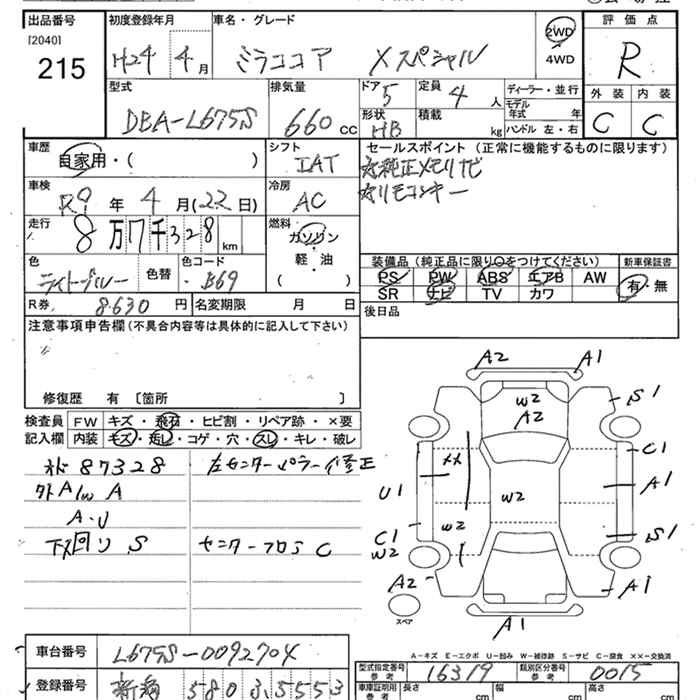 出品番号
[2040]
215
初度登録年月
H24年 4月
車名・グレード
ミラココア Xスペシャル
2WD
4WD
評価点
R
型式
DBA-L675S
排気量
660cc
ドア 5
形状 HB
定員 4人
積載 kg
ディーラー・並行
モデル年式 年
ハンドル 左・右
外装 内装
C C
車歴
自家用・( )
シフト
IAT
セールスポイント (正常に機能するものに限ります)
☆純正メモリナビ
☆リモコンキー
車検
R9年 4月(22日)
冷房
AC
走行
8万7千328km
燃料
ガソリン
・
軽・油
( )
色
ライトブルー
色替
色コード
B69
装備品 (純正品に限り○をつけてください)
新車保証書
PS PW ABS エアB AW
SR ナビ TV カワ
有・無
R券 8.630円
名変期限 月 日
後日品
注意事項申告欄 (不具合内容等は具体的に記入して下さい)
修復歴 有 〔箇所 〕
検査員
記入欄
FW キズ・飛石・ヒビ割・リペア跡・×要
内装 キズ・汚し・コゲ・穴・スレ・キレ・破レ
87328
左センターピラー修正
外A/W A
A・U
下回り S
センターフロア C
A2 A1
W2
A2
S1
C1
XX
A1
U1
W2
W2
C1
W2
S1
A2
A1
スペア
A1
A-キズ E-エクボ U-凹み W-補修跡 S-サビ C-腐食 XX-交換済
車台番号
L675S-0092704
登録番号
新潟 580 ふ 5553
型式指定番号
参考
16319
類別区分番号
参考
0015
車庫証明用
参考
長さ cm
幅 cm
高さ cm